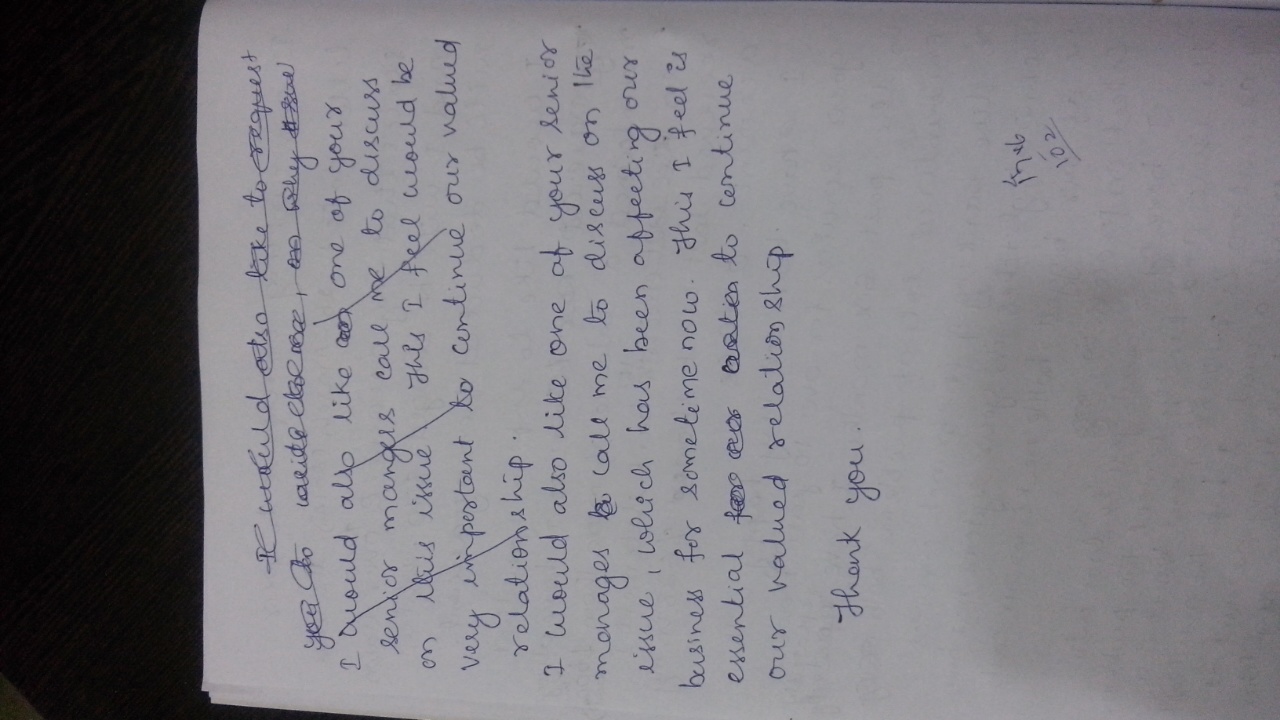 I would also like to request
you to write to me, on why issue
I would also like one of your
senior manges call me to discuss
on this issue This I feel would be
very important to continue our valued
relationship.
I would also like one of your senior
manages to call me to discuss on the
issue, which has been affecting our
business for sometime now. This I feel is
essential for our to continue
our valued relationship.
Thank you.
102